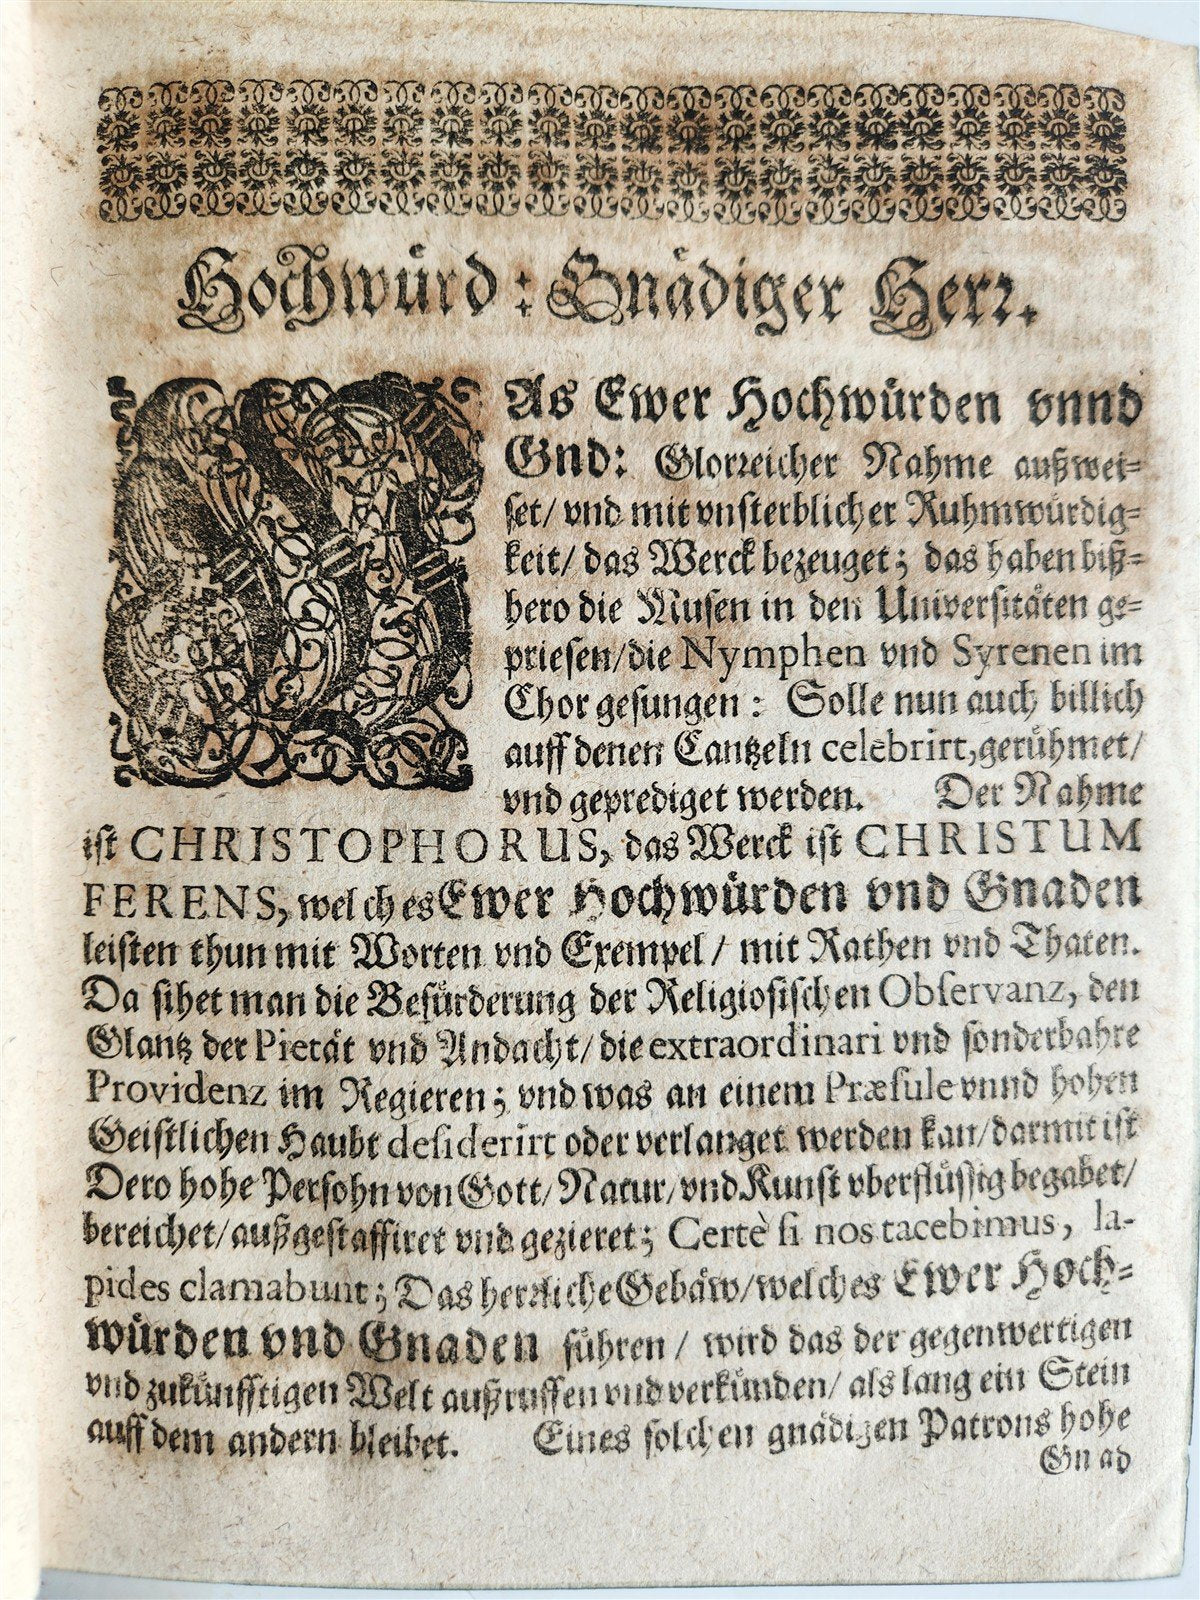 Hochwuͤrd: Gnaͤdiger Herꝛ.
WAs Ewer Hochwuͤrden vnnd
Gnd: Gloꝛreicher Nahme außwei=
set/ vnd mit vnsterblicher Ruhmwuͤrdig=
keit/ das Werck bezeuget; das haben biß=
hero die Musen in den Universitaͤten ge=
priesen/die Nymphen vnd Syrenen im
Chor gesungen: Solle nun auch billich
auff denen Cantzeln celebrirt, geruͤhmet/
vnd geprediget werden. Der Nahme
ist CHRISTOPHORUS, das Werck ist CHRISTUM
FERENS, welches Ewer Hochwuͤrden vnd Gnaden
leisten thun mit Worten vnd Exempel/ mit Rathen vnd Thaten.
Da sihet man die Befuͤrderung der Religiosischen Observanz, den
Glantz der Pietät vnd Andacht/ die extraordinari vnd sonderbahre
Providenz im Regieren; vnd was an einem Præsule vnnd hohen
Geistlichen Haubt desiderirt oder verlanget werden kan/ darmit ist
Dero hohe Persohn von Gott/ Natur/ vnd Kunst vberfluͤssig begabet/
bereichet/ außgestaffiret vnd gezieret; Certè si nos tacebimus, la-
pides clamabunt; Das herꝛliche Gebaͤw/welches Ewer Hoch=
wuͤrden vnd Gnaden fuͤhren/ wird das der gegenwertigen
vnd zukuͤnfftigen Welt außruffen vnd verkuͤnden/ als lang ein Stein
auff dem andern bleibet. Eines solchen gnaͤdigen Patrons hohe
Gnad